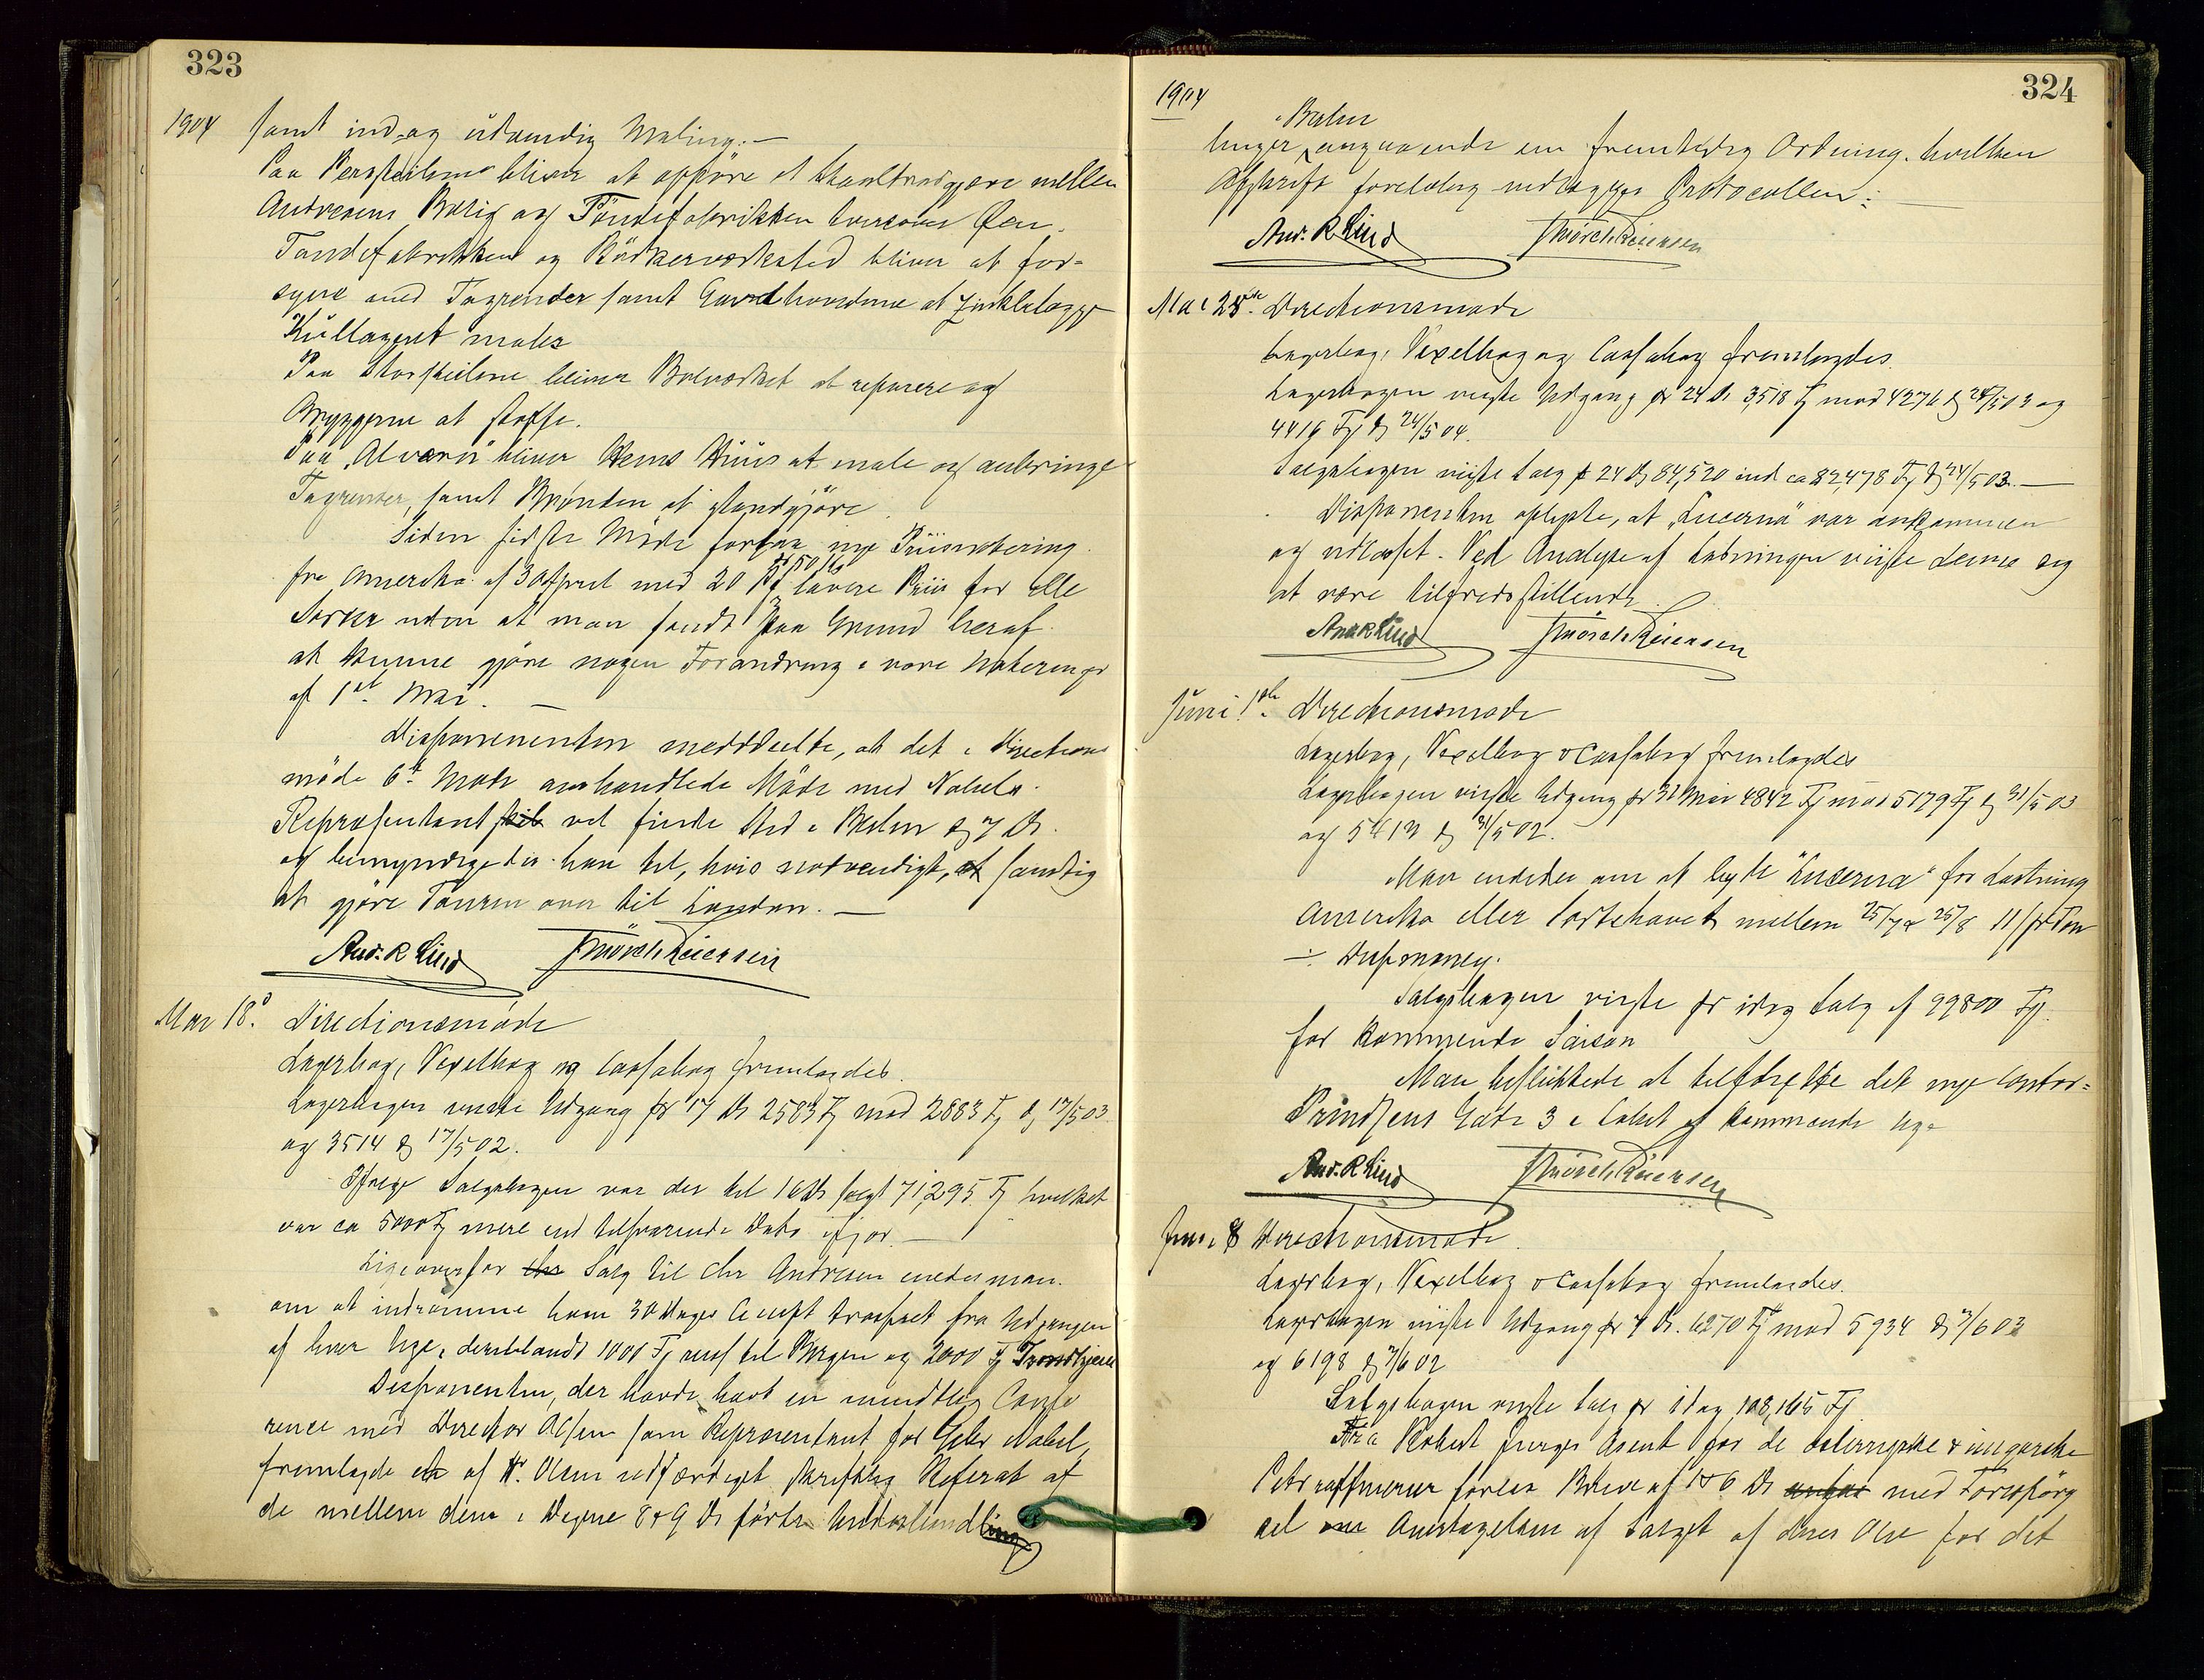 323
1904 samt ind- og udvendig Maling. —
Paa Persteilene bliver at opføre et Staaltraadgjære mellem
Andresens Bolig og Töndefabrikken tversover Øen.
Töndefabrikken og Bödkerværksted bliver at for-
syne med Tagrender samt Gavlbordene at Zinkbelægge
Kullageret males
Paa Storsteilene bliver Bolværket at reparere og
Bryggerne at
Paa "Alvøen" bliver Huus at male og anbringe
Tagrender, samt Brønden at istandgjöre.
Siden sidste Möde forelaa nye Priisnotering
fra Amerika af 30 April med 20 Pf pr 50 Ko lavere Priis for alle
Sorter uden at man fandt paa Grund heraf
at kunne gjöre nogen Forandring i vore Noteringer
af 1st Mai. —
Disponenten meddeelte, at det i Directions
möde 6te Mai omhandlede Möde med Nobels
Repræsentant vil finde Sted i Berlin d 7 Ds.
og bemyndigedes han til, hvis nødvendigt, at samtidig
at gjöre Touren over til London. —
And. R Lind Thv Mörch Reiersen
Mai 18d. Directionsmöde
Lagerbog, Vexelbog og Cassabog fremlagdes.
Lagerbogen viiste Udgang pr 17 Ds 2583 Fj mod 2883 Fj d 17/5 03
og 3514 d 17/5 02.
Ifølge Salgsbogen var der til 16 Ds solgt 71,295 Fj hvilket
var ca 5000 Fj mere end tilsvarende Dato ifjor. —
Ligeoverfor Salg til Chr Andresen enedes man
om at indrömme ham 30 Dages Accept trasseret fra Udgangen
af hver Uge, deriblandt 1000 Fj til Bergen og 2000 Fj Trondhjem
Disponenten, der havde havt en mundtlig Confe
rence med Director Olsen som Repræsentant for Gebr Nobel,
fremlagde et af Hr. Olsen udfærdiget skriftlig Referat af
de mellem dem i Dagene 8 & 9 Ds förte Underhandling
324
1904
i Berlin
linger angaaende en fremtidig Ordning. hvilken
Afskrift foreløbig vedlægges Protocollen: —
And. R Lind Thv Mörch Reiersen
Mai 25de. Directionsmöde
Lagerbog, Vexelbog og Cassabog fremlagdes.
Lagerbogen viiste Udgang pr 24 Ds 3,518 Fj mod 4276 d 24/5 03 og
4416 Fj d 24/5 04.
Salgsbogen viiste Salg pr 24 Ds 84,520 imod ca 82,478 Fj d 24/5 03. —
Disponenten oplyste, at "Lucerna" var ankommen
og udlosset. Ved Analyse af Ladningen viiste denne sig
at være tilfredsstillende.
And R Lind Thv Mörch Reiersen
Juni 1ste. Directionsmöde
Lagerbog, Vexelbog & Cassabog fremlagdes
Lagerbogen viiste Udgang pr 31 Mai 4842 Fj mod 5179 Fj d 31/5 03
og 5413 d 31/5 02.
Man enedes om at byde "Lucerna" for Lastning
Amerika eller Sortehavet mellem 25/7 & 25/8 11/ pr Ton
÷ Dispmoney.
Salgsbogen viiste pr idag Salg af 99800 Fj
for kommende Saison
Man besluttede at tilflytte det nye Contor-
Prindsens Gade 3 i Løbet af kommende Uge
And. R Lind Thv Mörch Reiersen
Juni 8 Directionsmöde.
Lagerbog, Vexelbog & Cassabog fremlagdes.
Lagerbogen viiste Udgang pr 7 Ds. 6270 Fj mod 5934 d 7/6 03
og 6198 d 7/6 02
Salgsbogen viiste Salg pr idag 108,165 Fj
Fra Robert Agent for de østerrigske & ungarske
Petr raffinerier forelaa Breve af 1 & 6 Ds med Forespörg
sel om Overtagelsen af Salget af deres Olie for det